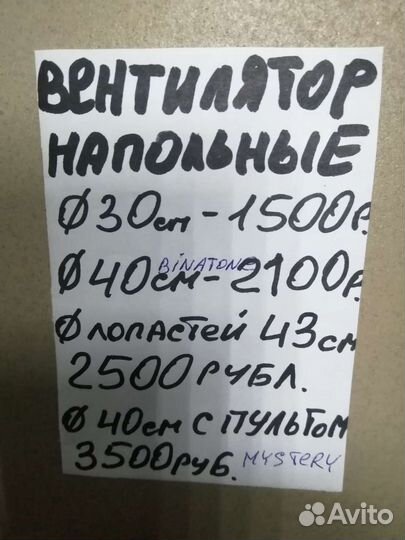 ВЕНТИЛЯТОР
НАПОЛЬНЫЕ
Ø30см-1500р.
BINATONE
Ø40см-2100р.
Ø ЛОПАСТЕЙ 43 см
2500 РУБЛ.
Ø 40см С ПУЛЬТОМ
3500РУБ. MYSTERY
Avito